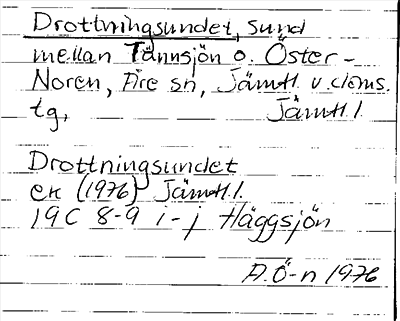 Drottningsundet, sund
mellan Tännsjön o. Öster-
Noren, Åre sn, Jämtl. v. doms.
tg, Jämtl l.
Drottningsundet
ek (1976) Jämtl l.
19C 8-9 i-j Häggsjön
A.Ö-n 1976